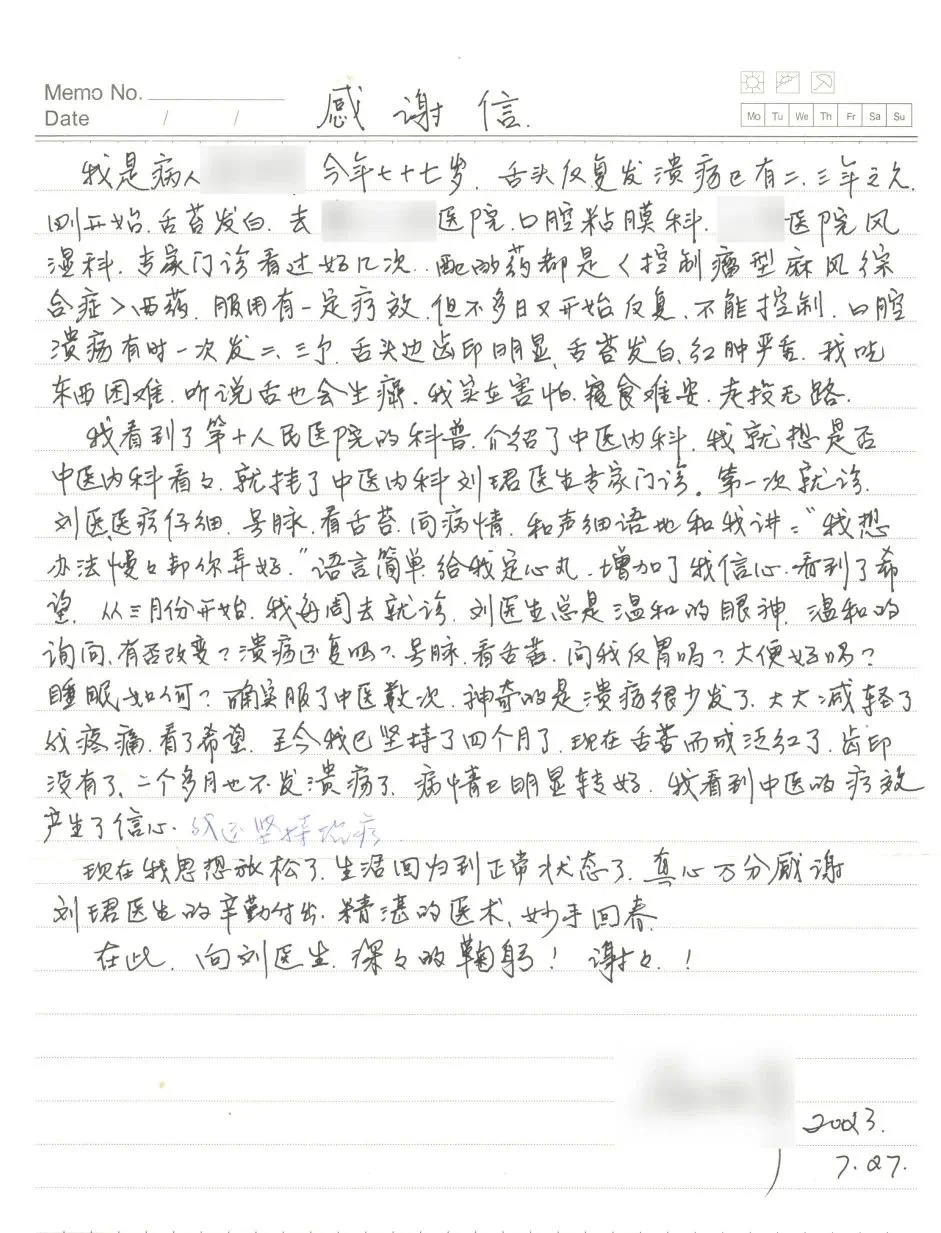 Memo No.
Date / /
Mo Tu We Th Fr Sa Su
感谢信.
我是病人 今年七十七岁. 舌头反复发溃疡已有二.三年之久.
刚开始.舌苔发白.去 医院.口腔粘膜科. 医院风
湿科.专家门诊看过好几次.配的药都是〈控制瘤型麻风综
合症〉西药.服用有一定疗效.但不多日又开始反复.不能控制.口腔
溃疡有时一次发二.三个.舌头边齿印明显.舌苔发白.红肿严重.我吃
东西困难.听说舌也会生癌.我实在害怕.寝食难安.走投无路.
我看到了第十人民医院的科普.介绍了中医内科.我就想是否
中医内科看看.就挂了中医内科刘珺医生专家门诊。第一次就诊.
刘医医疗仔细.号脉.看舌苔.问病情.和声细语地和我讲:“我想
办法慢慢帮你弄好.”语言简单.给我定心丸.增加了我信心.看到了希
望.从三月份开始.我每周去就诊.刘医生总是温和的眼神.温和的
询问.有否改变?溃疡还复吗?号脉.看舌苔.问我反胃吗?大便好吗?
睡眠如何?确实服了中医数次.神奇的是溃疡很少发了.大大减轻了
我疼痛.看了希望.至今我已坚持了四个月了.现在舌苔而成泛红了.齿印
没有了.二个多月也不发溃疡了.病情已明显转好.我看到中医的疗效
产生了信心.我还坚持治疗
现在我思想放松了.生活回归到正常状态了.真心万分感谢
刘珺医生的辛勤付出.精湛的医术.妙手回春.
在此.向刘医生.深々的鞠躬!谢々.!
2023.
7.27.